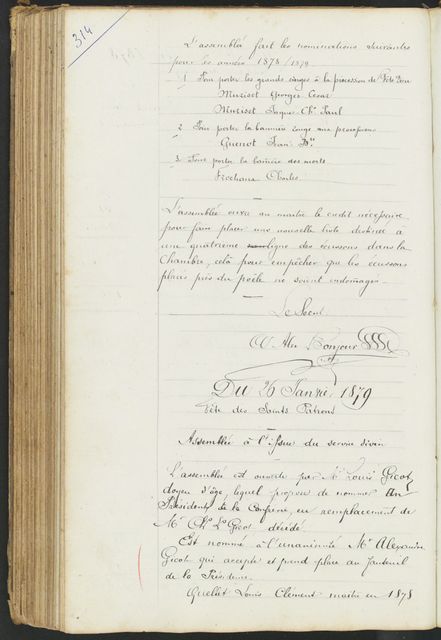 314
L'assemblée fait les nominations suivantes
pour les années 1878/1879
1 Pour porter les grands cierges à la procession de Fête Dieu
Muriset Georges César
Muriset Jaques Chs Paul
2 Pour porter la bannière rouge aux processions
Guenot Jean Bte
3 Pour porter la bannière des morts
Frochaux Charles
L'assemblée ouvre au maître le crédit nécessaire
pour faire placer une nouvelle liste destinée a
une quatrième ligne des écussons dans la
Chambre, cela pour empêcher que les écussons
placés près du poële ne soient endomagés
Le Secret
Alex Bonjour
Du 26 Janvier 1879
Fête des Saints Patrons
Assemblée à l'issue du service divin
L'assemblée est ouverte par Mr Louis Gicot
doyen d'âge, lequel propose de nommer un
Président de la Confrérie, en remplacement de
Mr Chs Ls Gicot décédé.
Est nommé à l'unanimité Mr Alexandre
Gicot qui accepte et prend place au fauteuil
de la Présidence.
Quellet Louis Clément maître en 1878